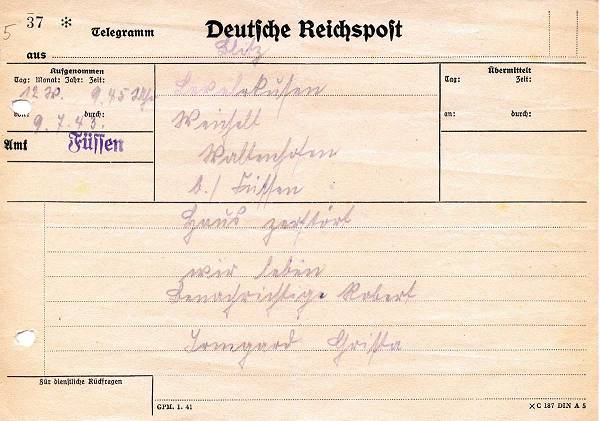 5 37 * Telegramm Deutsche Reichspost
aus Blitz
Aufgenommen
Tag: Monat: Jahr: Zeit:
9.45 Uhr
von: durch:
9.7.43.
Amt Füssen
Übermittelt
Tag: Zeit:
an: durch:
Weichelt
Waltenhofen
b./ Füssen
Haus zerstört
wir leben
Benachrichtige Robert
Irmgard
Für dienstliche Rückfragen
GPM. 1. 41
C 187 DIN A 5